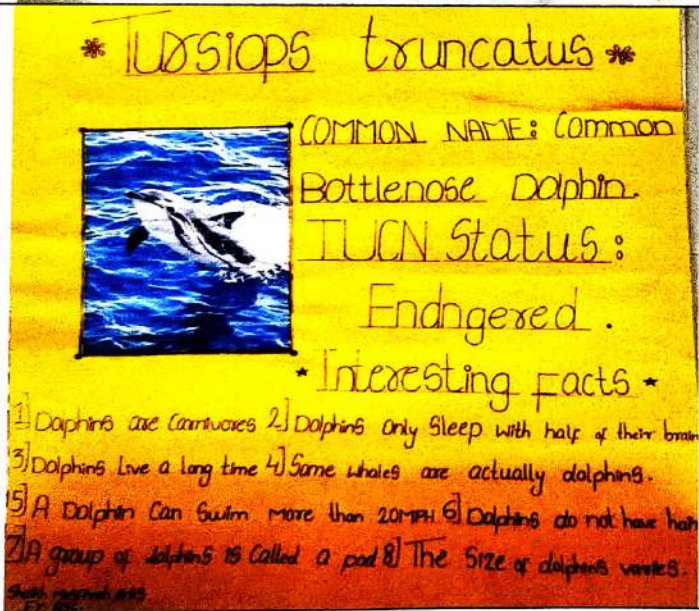 Tursiops truncatus
COMMON NAME: Common
Bottlenose Dolphin.
IUCN Status:
Endngered.
Interesting Facts
1] Dolphins are Carnivores 2] Dolphins only Sleep with half of their brain
3] Dolphins Live a long time 4] Some whales are actually dolphins.
5] A Dolphin Can Swim more than 20MPH 6] Dolphins do not have hair
7] A group of dolphins is Called a pod 8] The Size of dolphins varries.
Shaikh